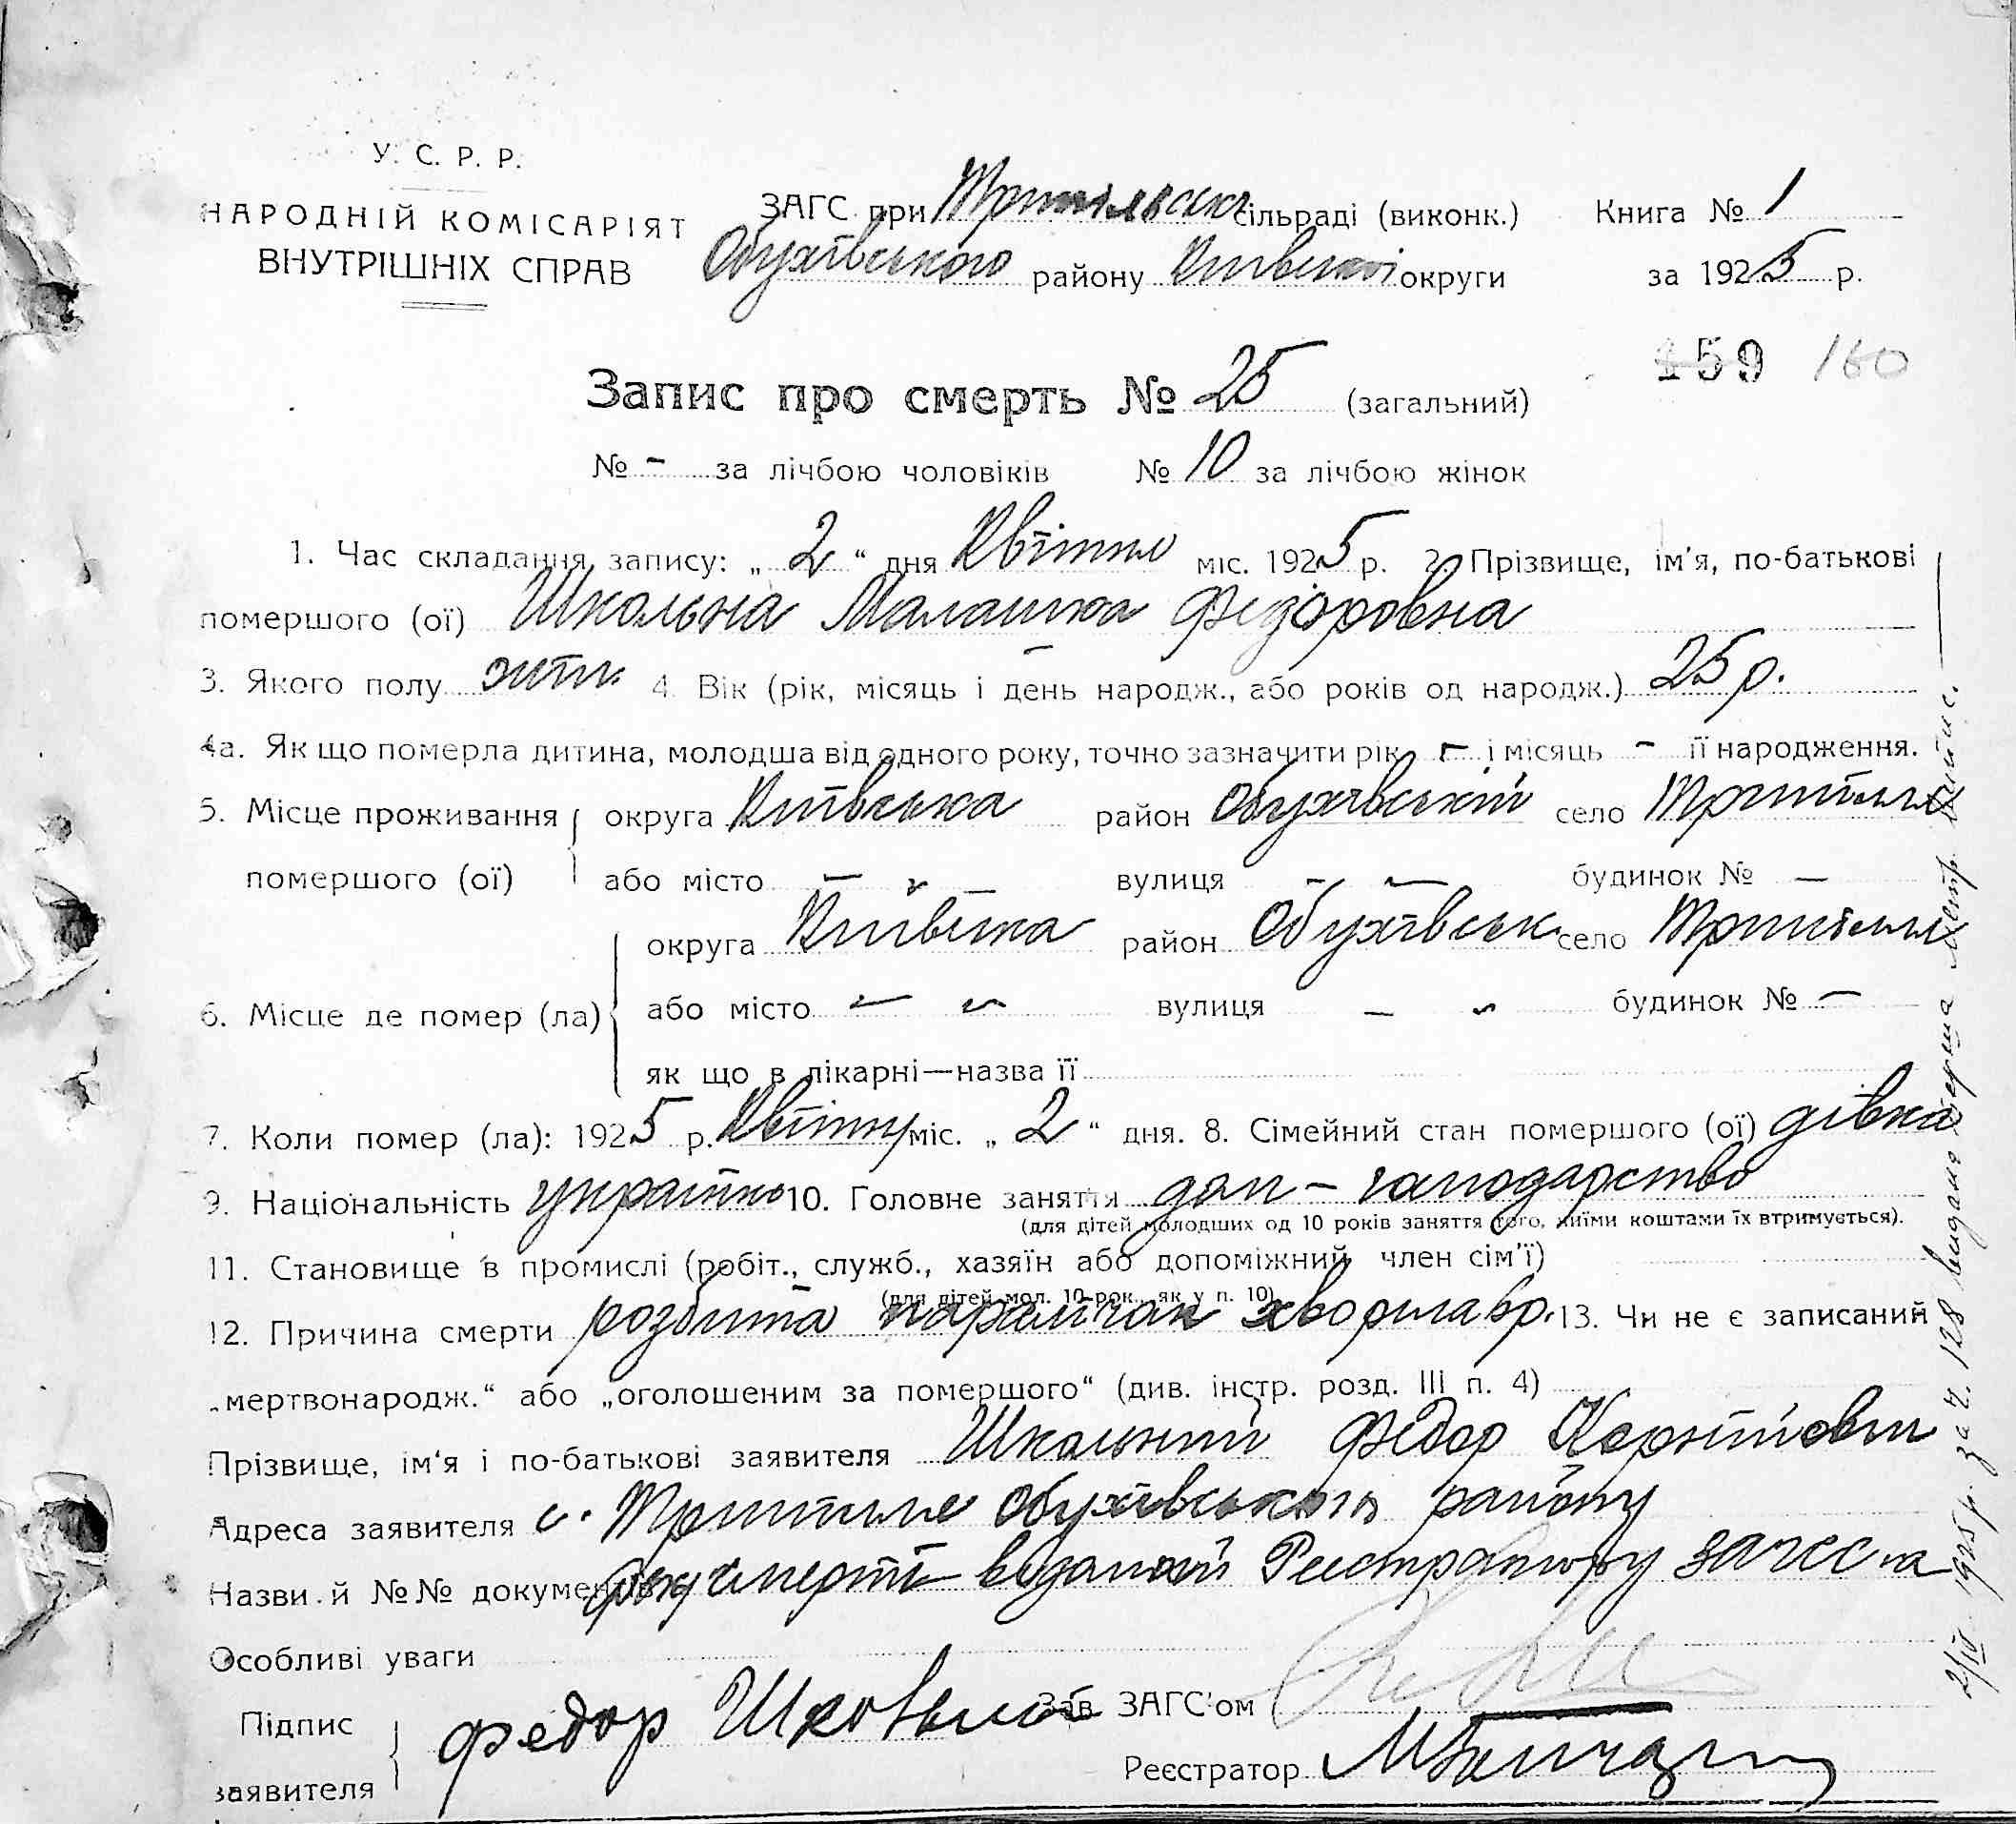 У. С. Р. Р.
НАРОДНІЙ КОМІСАРІЯТ
ВНУТРІШНІХ СПРАВ
ЗАГС при Трипільскі сільраді (виконк.)
Обухівського району Київської округи
Книга № 1
за 1925 р.
159 160
Запис про смерть № 25 (загальний)
№ - за лічбою чоловіків № 10 за лічбою жінок
1. Час складання запису: „ 2 “ дня Квітня міс. 1925 р. 2. Прізвище, ім'я, по-батькові
помершого (ої) Школьна Малашка Федоровна
3. Якого полу жін. 4. Вік (рік, місяць і день народж., або років од народж.) 25 р.
4а. Як що померла дитина, молодша від одного року, точно зазначити рік - і місяць - її народження.
5. Місце проживання округа Київська район Обухівський село Трипілля
помершого (ої) або місто — — вулиця — — будинок № —
округа Київська район Обухівськ. село Трипілля
6. Місце де помер (ла) або місто — — вулиця — — будинок № —
як що в лікарні—назва її
7. Коли помер (ла): 1925 р. Квітня міс. „ 2 “ дня. 8. Сімейний стан помершого (ої) дівка
9. Національність українка 10. Головне заняття дом - господарство
(для дітей молодших од 10 років заняття того, чиїми коштами їх втримується).
11. Становище в промислі (робіт., служб., хазяїн або допоміжний член сім'ї)
(для дітей мол. 10 рок., як у п. 10)
12. Причина смерти розбита паралічом хворила 13. Чи не є записаний
„мертвонародж.“ або „оголошеним за помершого“ (див. інстр. розд. III п. 4)
Прізвище, ім'я і по-батькові заявителя Школьний Федор
Адреса заявителя с. Трипілля Обухівського району
Назви й №№ документів смерті Реєстратору
Особливі уваги
Зав. ЗАГС'ом
Підпис
заявителя
Федор Школьной
Реєстратор
2/IV 1925 р. за Ч. 128 видана перша метр. випис.